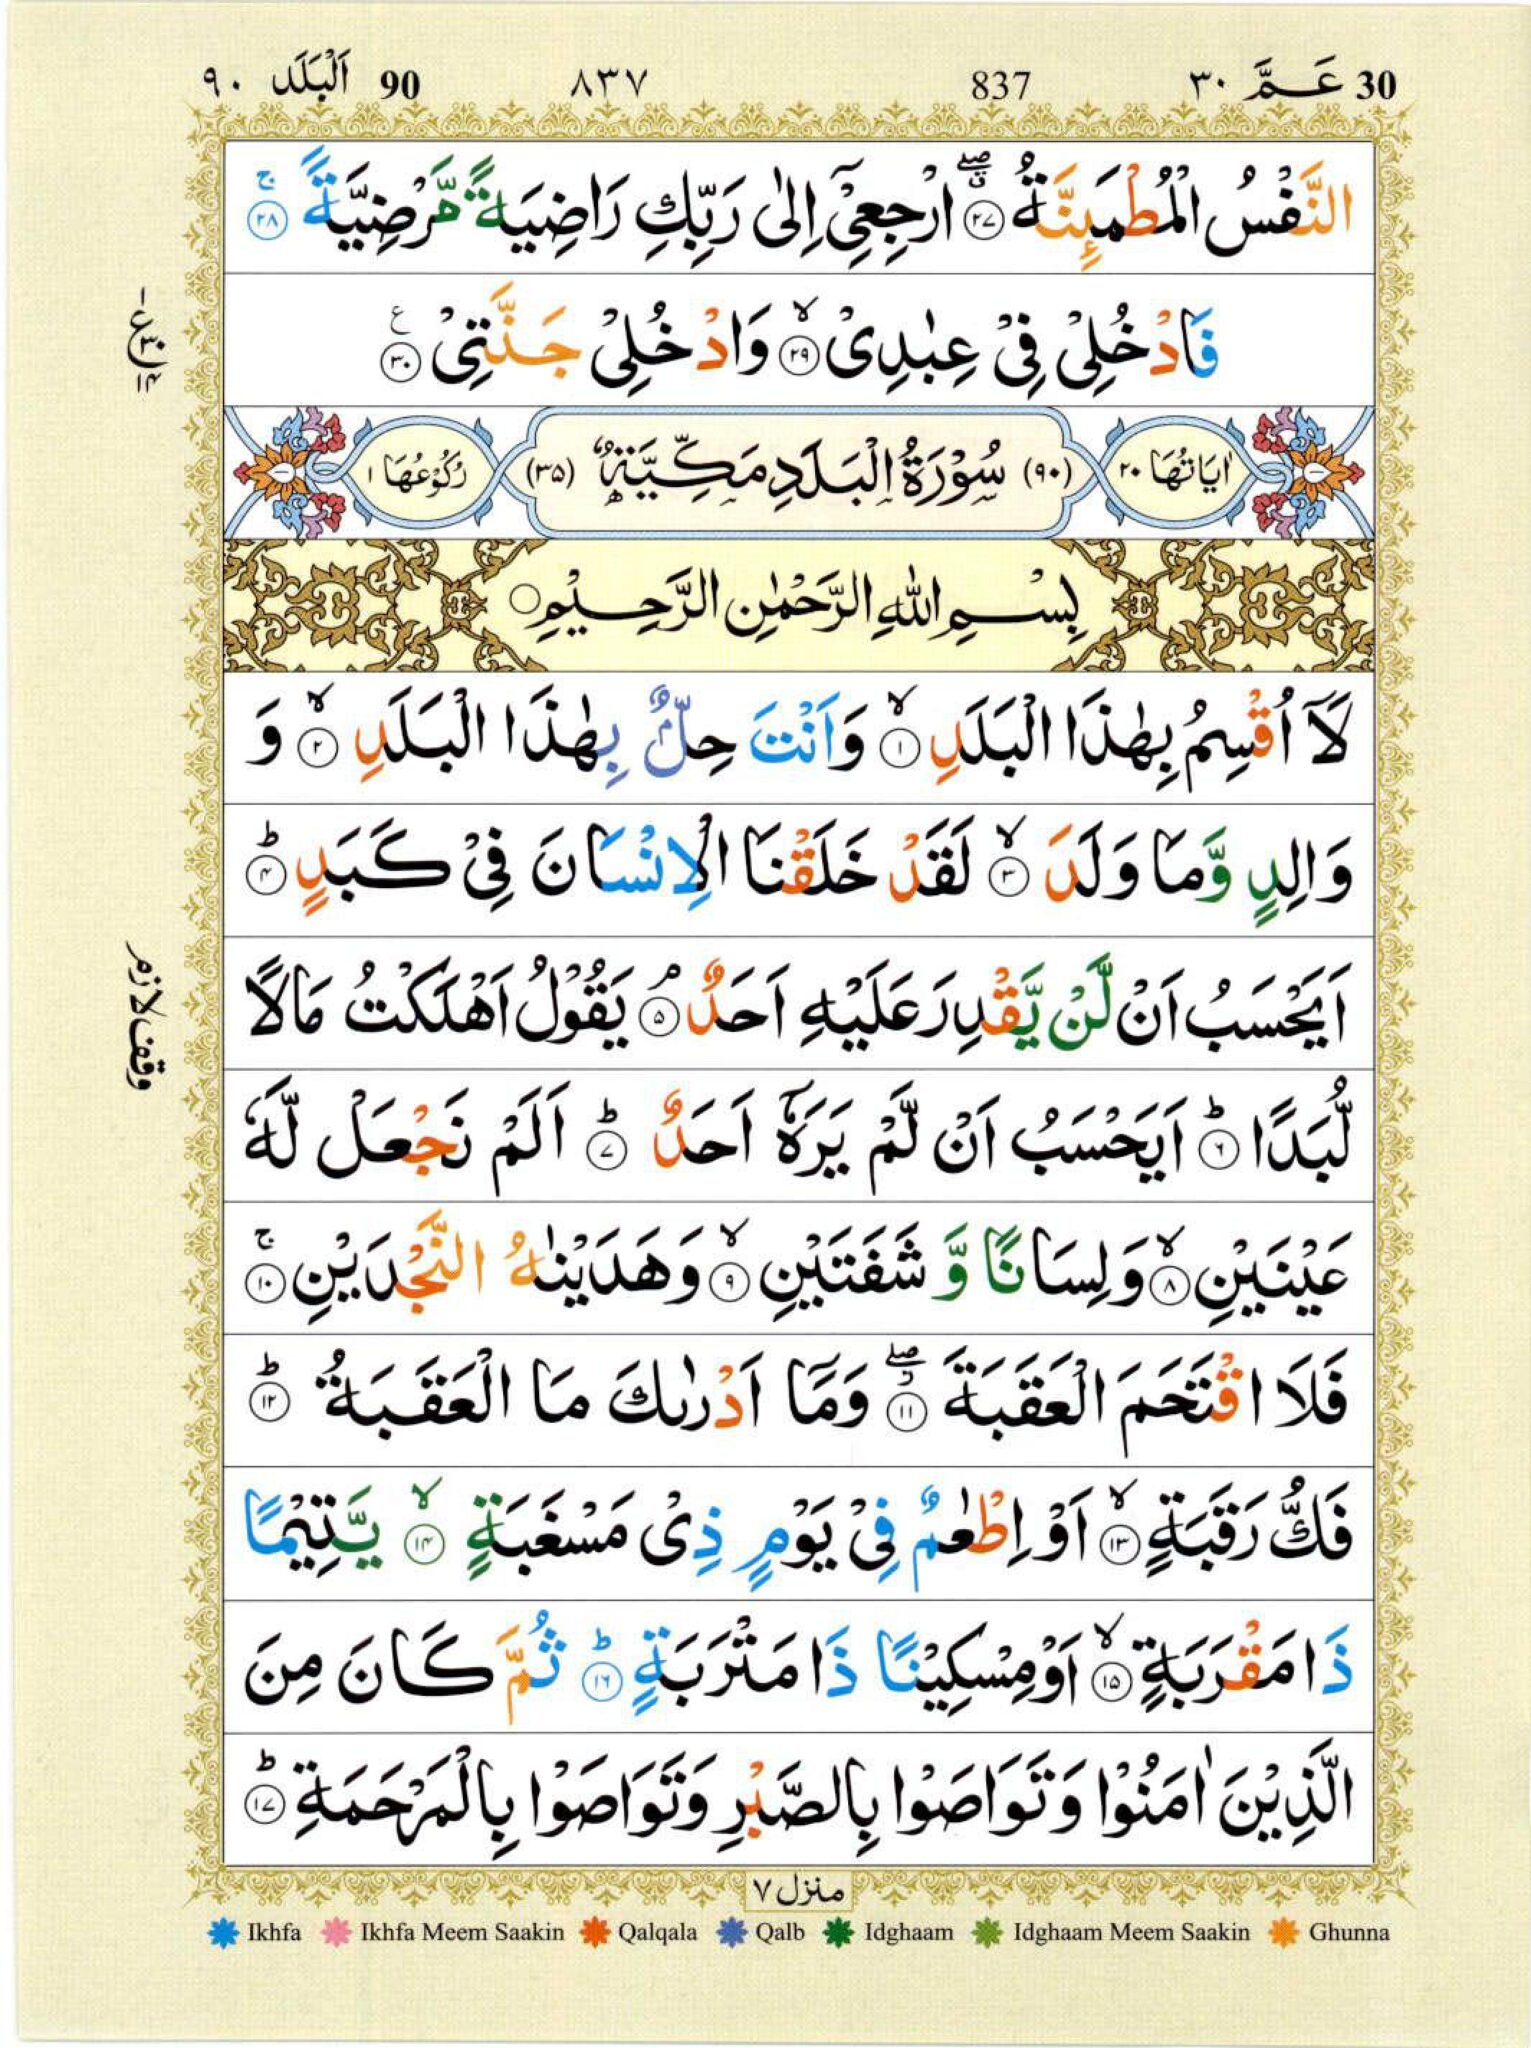 30 عَمَّ ٣٠ 837 ٨٣٧ 90 اَلْبَلَد ٩٠
النَّفْسُ الْمُطْمَىِٕنَّةُ ۖۗ ﴿٢٧﴾ ارْجِعِیْۤ اِلٰى رَبِّكِ رَاضِیَةً مَّرْضِیَّةً ۚ ﴿٢٨﴾
فَادْخُلِیْ فِیْ عِبٰدِیْ ۙ ﴿٢٩﴾ وَادْخُلِیْ جَنَّتِیْ ﴿٣٠﴾ ع
اٰیَاتُهَا ٢٠ (٩٠) سُوْرَةُ الْبَلَدِ مَكِّیَّةٌ (٣٥) رُكُوْعُهَا ١
بِسْمِ اللّٰهِ الرَّحْمٰنِ الرَّحِیْمِ
لَاۤ اُقْسِمُ بِهٰذَا الْبَلَدِ ۙ ﴿١﴾ وَاَنْتَ حِلٌّۢ بِهٰذَا الْبَلَدِ ۙ ﴿٢﴾ وَ
وَالِدٍ وَّمَا وَلَدَ ۙ ﴿٣﴾ لَقَدْ خَلَقْنَا الْاِنْسَانَ فِیْ كَبَدٍ ؕ ﴿٤﴾
اَیَحْسَبُ اَنْ لَّنْ یَّقْدِرَ عَلَیْهِ اَحَدٌ ۘ ﴿٥﴾ یَقُوْلُ اَهْلَكْتُ مَالًا
لُّبَدًا ؕ ﴿٦﴾ اَیَحْسَبُ اَنْ لَّمْ یَرَهٗۤ اَحَدٌ ؕ ﴿٧﴾ اَلَمْ نَجْعَلْ لَّهٗ
عَیْنَیْنِ ۙ ﴿٨﴾ وَلِسَانًا وَّ شَفَتَیْنِ ۙ ﴿٩﴾ وَهَدَیْنٰهُ النَّجْدَیْنِ ۚ ﴿١٠﴾
فَلَا اقْتَحَمَ الْعَقَبَةَ ۖؗ ﴿١١﴾ وَمَاۤ اَدْرٰىكَ مَا الْعَقَبَةُ ؕ ﴿١٢﴾
فَكُّ رَقَبَةٍ ۙ ﴿١٣﴾ اَوْ اِطْعٰمٌ فِیْ یَوْمٍ ذِیْ مَسْغَبَةٍ ۙ ﴿١٤﴾ یَّتِیْمًا
ذَا مَقْرَبَةٍ ۙ ﴿١٥﴾ اَوْ مِسْكِیْنًا ذَا مَتْرَبَةٍ ؕ ﴿١٦﴾ ثُمَّ كَانَ مِنَ
الَّذِیْنَ اٰمَنُوْا وَتَوَاصَوْا بِالصَّبْرِ وَتَوَاصَوْا بِالْمَرْحَمَةِ ؕ ﴿١٧﴾
منزل ٧
Ikhfa Ikhfa Meem Saakin Qalqala Qalb Idghaam Idghaam Meem Saakin Ghunna
ع ١ ٣٠ ١٤
وقف لازم